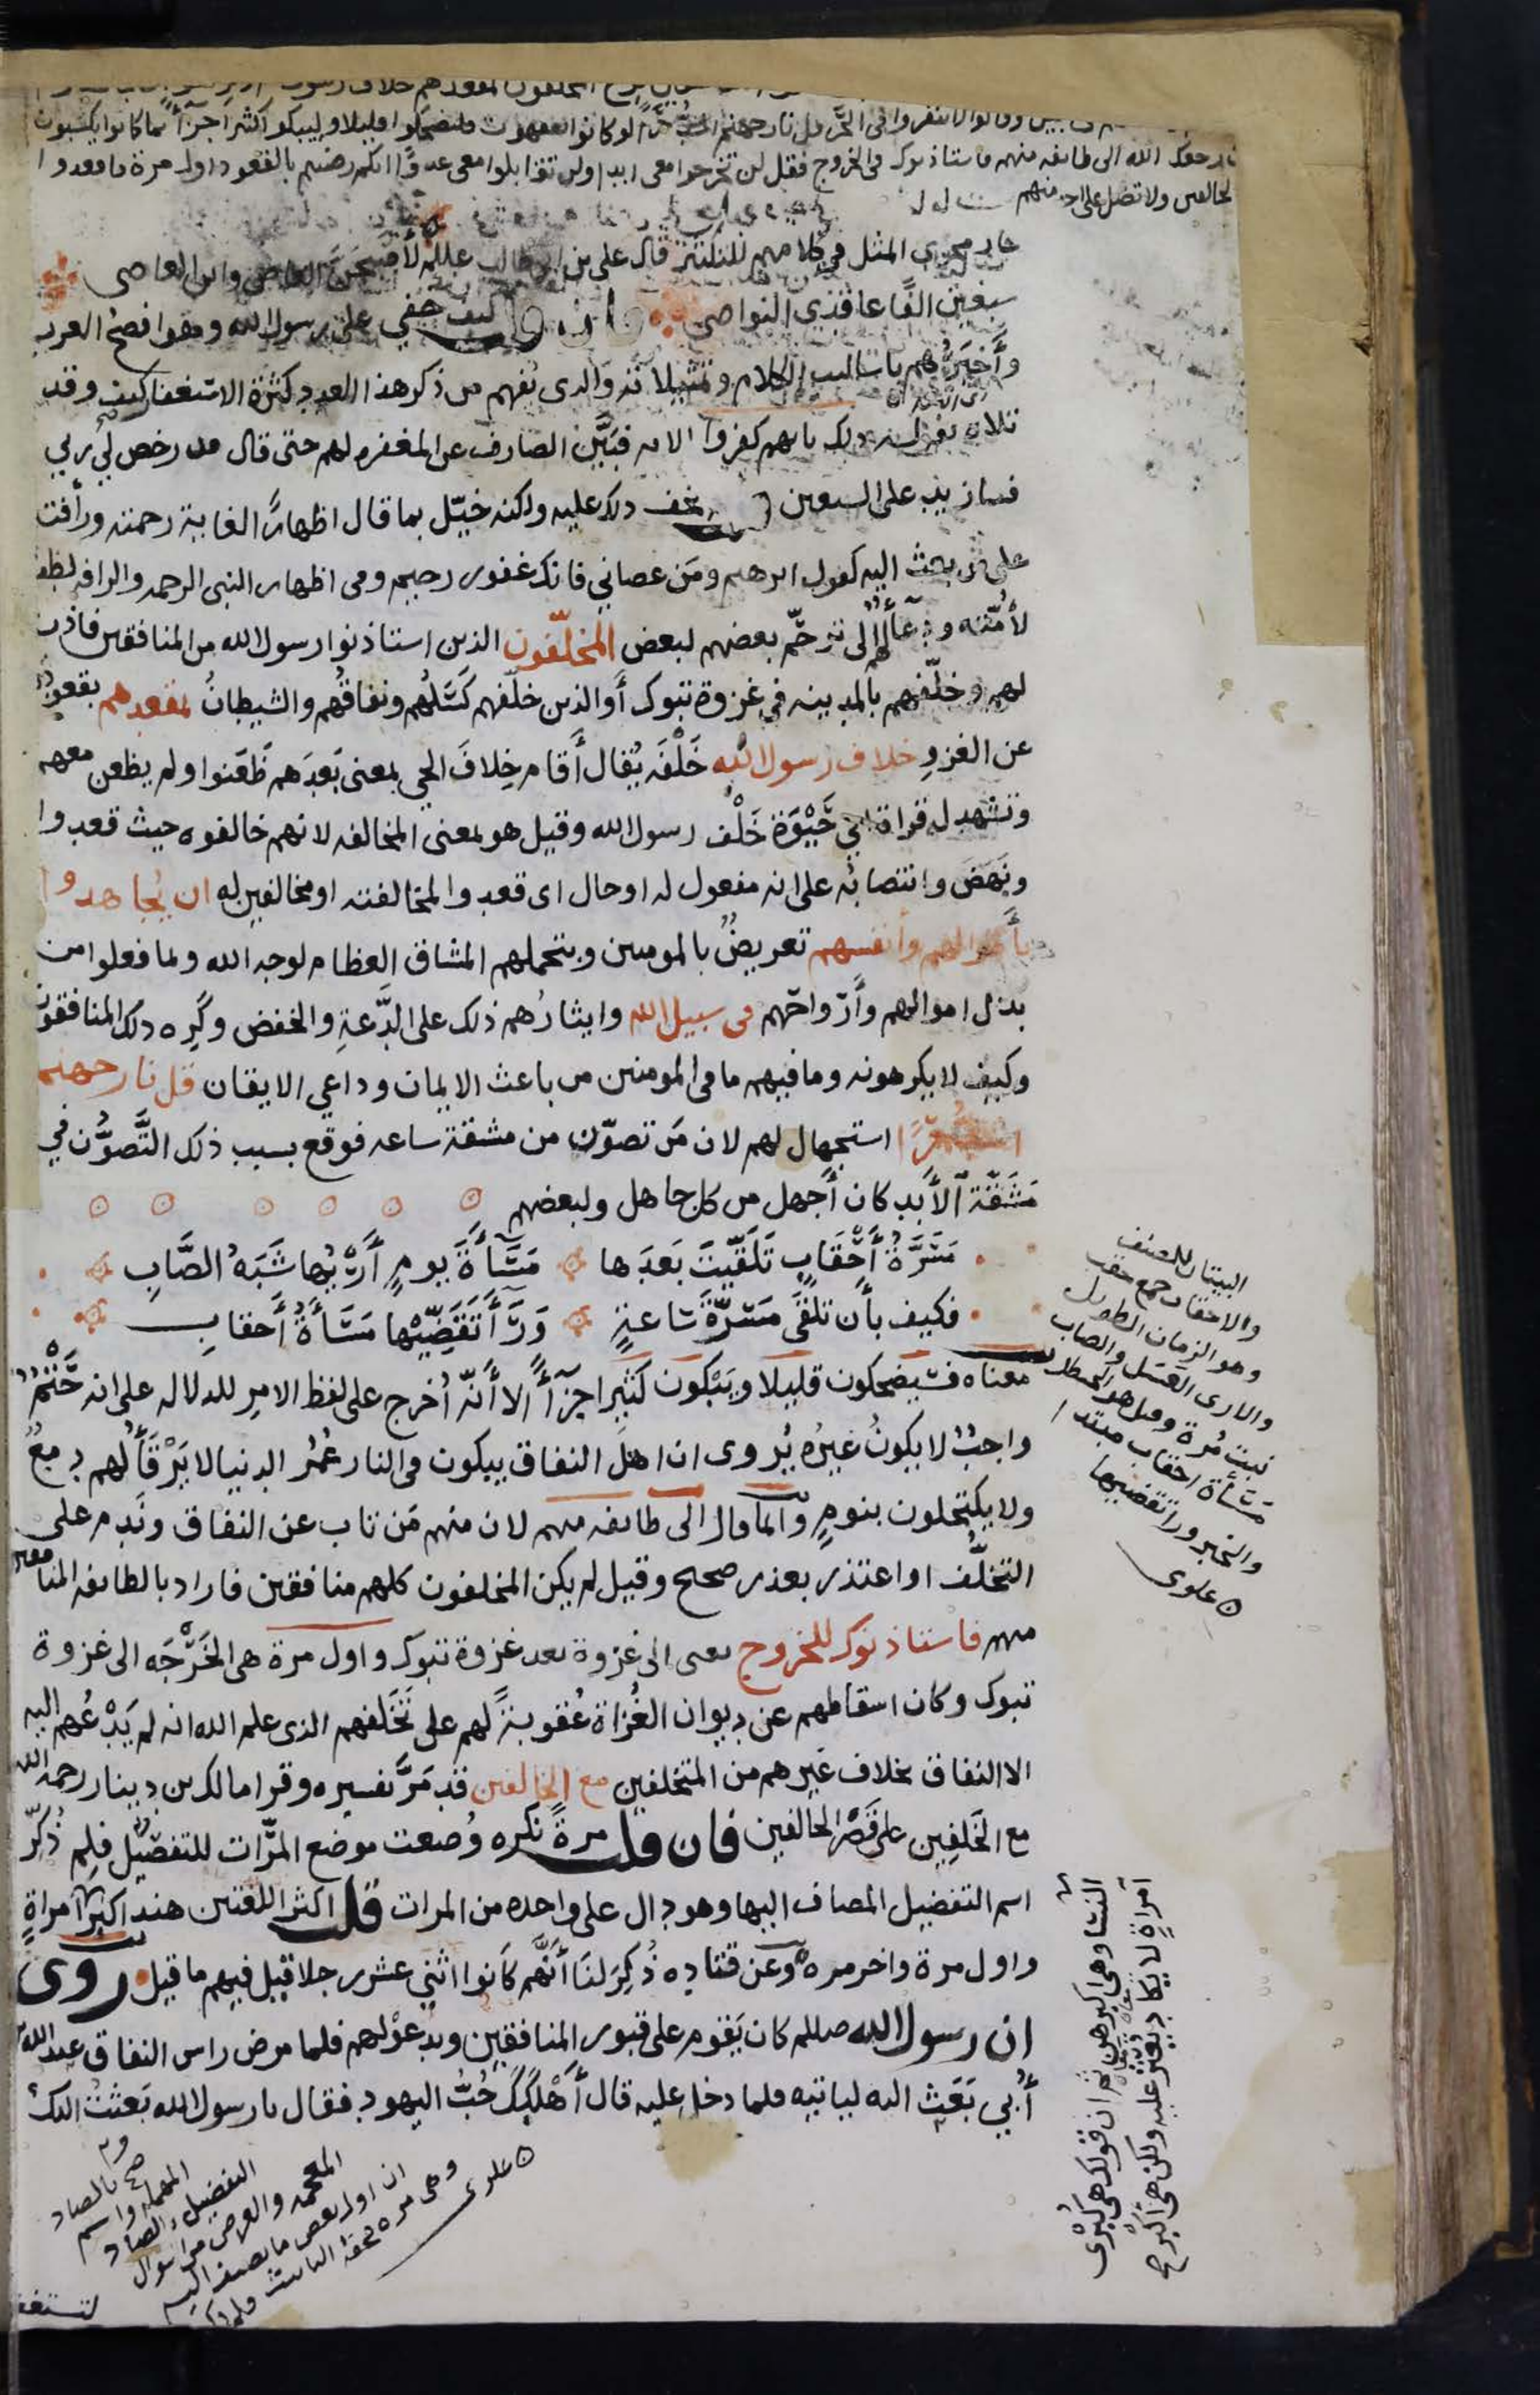 وقالوا لا تنفروا في الحر قل نار جهنم اشد حرا لو كانوا يفقهون فليضحكوا قليلا وليبكوا كثيرا جزآ بما كانوا يكسبون
رجعك الله الى طائفه منهم فاستاذنوك للخروج فقل لن تخرجوا معى ابدا ولن تقاتلوا معى عدوًّا انكم رضيتم بالقعود اول مرة فاقعدوا
الخالفين ولا تصل على احد منهم
جار مجرى المثل في كلامهم للتكثير قال على بن ابى طالب عللم لأصبحن العاصى وابن العاصى
سبعين الفًا عاقدى النواصى فان قلت كيف خفي على رسول الله وهو افصح العرب
وأخبرهم باساليب الكلام وتمثيلاته والذى يفهم من ذكر هذا العدد كثرة الاستغفار كيف وقد
تلاه بقوله ذلك بانهم كفروا الايه فبيَّن الصارف عن المغفره لهم حتى قال قد رخص لي ربي
فسازيد على السبعين قلت لم يخف ذلك عليه ولكنه خيّل بما قال اظهارًا لغاية رحمته ورأفته
على من بعث اليه كقول ابرهيم ومَن عصاني فانك غفور رحيم وفى اظهار النبى الرحمه والرافه لطف
لأمّته ودعآء لهم الى ترحّم بعضهم لبعض المخلّفون الذين استاذنوا رسول الله من المنافقين فاذن
لهم وخلّفهم بالمدينه في غزوة تبوك أو الذين خلّفهم كسَلُهم ونفاقُهم والشيطانُ بمقعدهم بقعودهم
عن الغزوِ خلاف رسول الله خَلْفَه يُقال أقام خِلافَ الحي بمعنى بَعدَهم ظَعَنوا ولم يظعن معهم
وتشهد له قراة ابي حَيْوَة خَلْفَ رسول الله وقيل هو بمعنى المخالفه لانهم خالفوه حيث قعدوا
ونَهَضَ وانتصابُه على انه مفعول له او حال اى قعدوا لمخالفته او مخالفين له ان يُجاهدوا
بأموالهم وأنفسهم تعريضٌ بالمومنين وبتحملهم المشاق العظام لوجه الله ولما فعلوا من
بذل اموالهم وأرْواحهم فى سبيل الله وايثارُهم ذلك على الدَّعةِ والخفض وكَرِه ذلك المنافقون
وكيف لا يكرهونه وما فيهم ما فى المومنين من باعث الايمان وداعي الايقان قل نار جهنم
اشد حرًّا استجهال لهم لان مَن تصوّن من مشقة ساعه فوقع بسبب ذلك التَّصوُّن في
مَشَقّة الأبَد كان أجهل من كل جاهل ولبعضهم
مَسَرَّةُ أحْقَابٍ تَلَقَّيْتَ بَعدَها مَسَآءَةَ يومٍ أَرْيُها شَبَهُ الصَّابِ
فكيف بأن تلقَى مَسَرّةَ سَاعةٍ وَرَآءَ تَقَضّيْها مَسَآءَةُ أَحقابِ
معناه فسَيضحكون قليلا ويَبْكون كثيرا جزآءً الا أنّه أُخرج على لفظ الامر للدلاله على انه حَتْمٌ
واجبٌ لا يكونُ غيرُه يُروى ان اهلَ النفاق يبكون فى النار عُمُرَ الدنيا لا يَرْقَأُ لهم دمعٌ
ولا يكتحلون بنومٍ وانما قال الى طائفه منهم لان منهم مَن تاب عن النفاق ونَدِم على
التخلُّف او اعتذر بعذر صحيح وقيل لم يكن المخلفون كلهم منافقين فاراد بالطائفه المنافقين
منهم فاستاذنوك للخروج يعنى الى غزوة بعد غزوة تبوك واول مرة هى الخَرْجَه الى غزوة
تبوك وكان اسقاطهم عن ديوان الغُزاة عُقوبةً لهم على تَخَلفهم الذى علم الله انه لم يَدْعُهم اليه
الا النفاق بخلاف غيرهم من المتخلفين مع الخالفين قد مَرَّ تفسيره وقرا مالك بن دينار رحمه الله
مع الخَلِفِين على قَصْر الخالفين فان قلت مرةً نكره وُضعت موضع المرَّات للتفضيل فلِم ذُكِّر
اسم التفضيل المضاف اليها وهو دال على واحده من المرات قلت اكثر اللغتين هند اكبر امراةٍ
واول مرة واخر مره وعن قتاده ذُكِرَ لنَا أنَّهم كَانوا اثنَي عشر رجلا قيل فيهم ما قيل روى
ان رسول الله صللم كان يَقوم على قبور المنافقين ويدعو لهم فلما مرض راس النفاق عبد الله بن
أُبي بَعَث اليه لياتيه فلما دخل عليه قال أَهْلَكَكَ حُبُّ اليهود فقال يا رسول الله بَعثتُ اليك
لتستغفر
البيتان للمصنف
والاحقاب جمع حقب
وهو الزمان الطويل
والارى العَسَل والصاب
نبتٌ مُرة وقيل هو الحنظل
مَسَآءة احقاب مبتدا
والخبر ورا تقضيها
ه علوى
النسا وهى اكبرهن ثم ان قولك هى كُبْرى
امراةٍ لا يكاد يُعثر عليه ولكن هى اكبر
صح بالصاد
المهمله واسم
التفضيل بالصاد
المعجمه والغرض من السوال
ان اول بعض ما يضاف اليه
وهى مره فحقه التانيث فلم ذكر
ه علوى